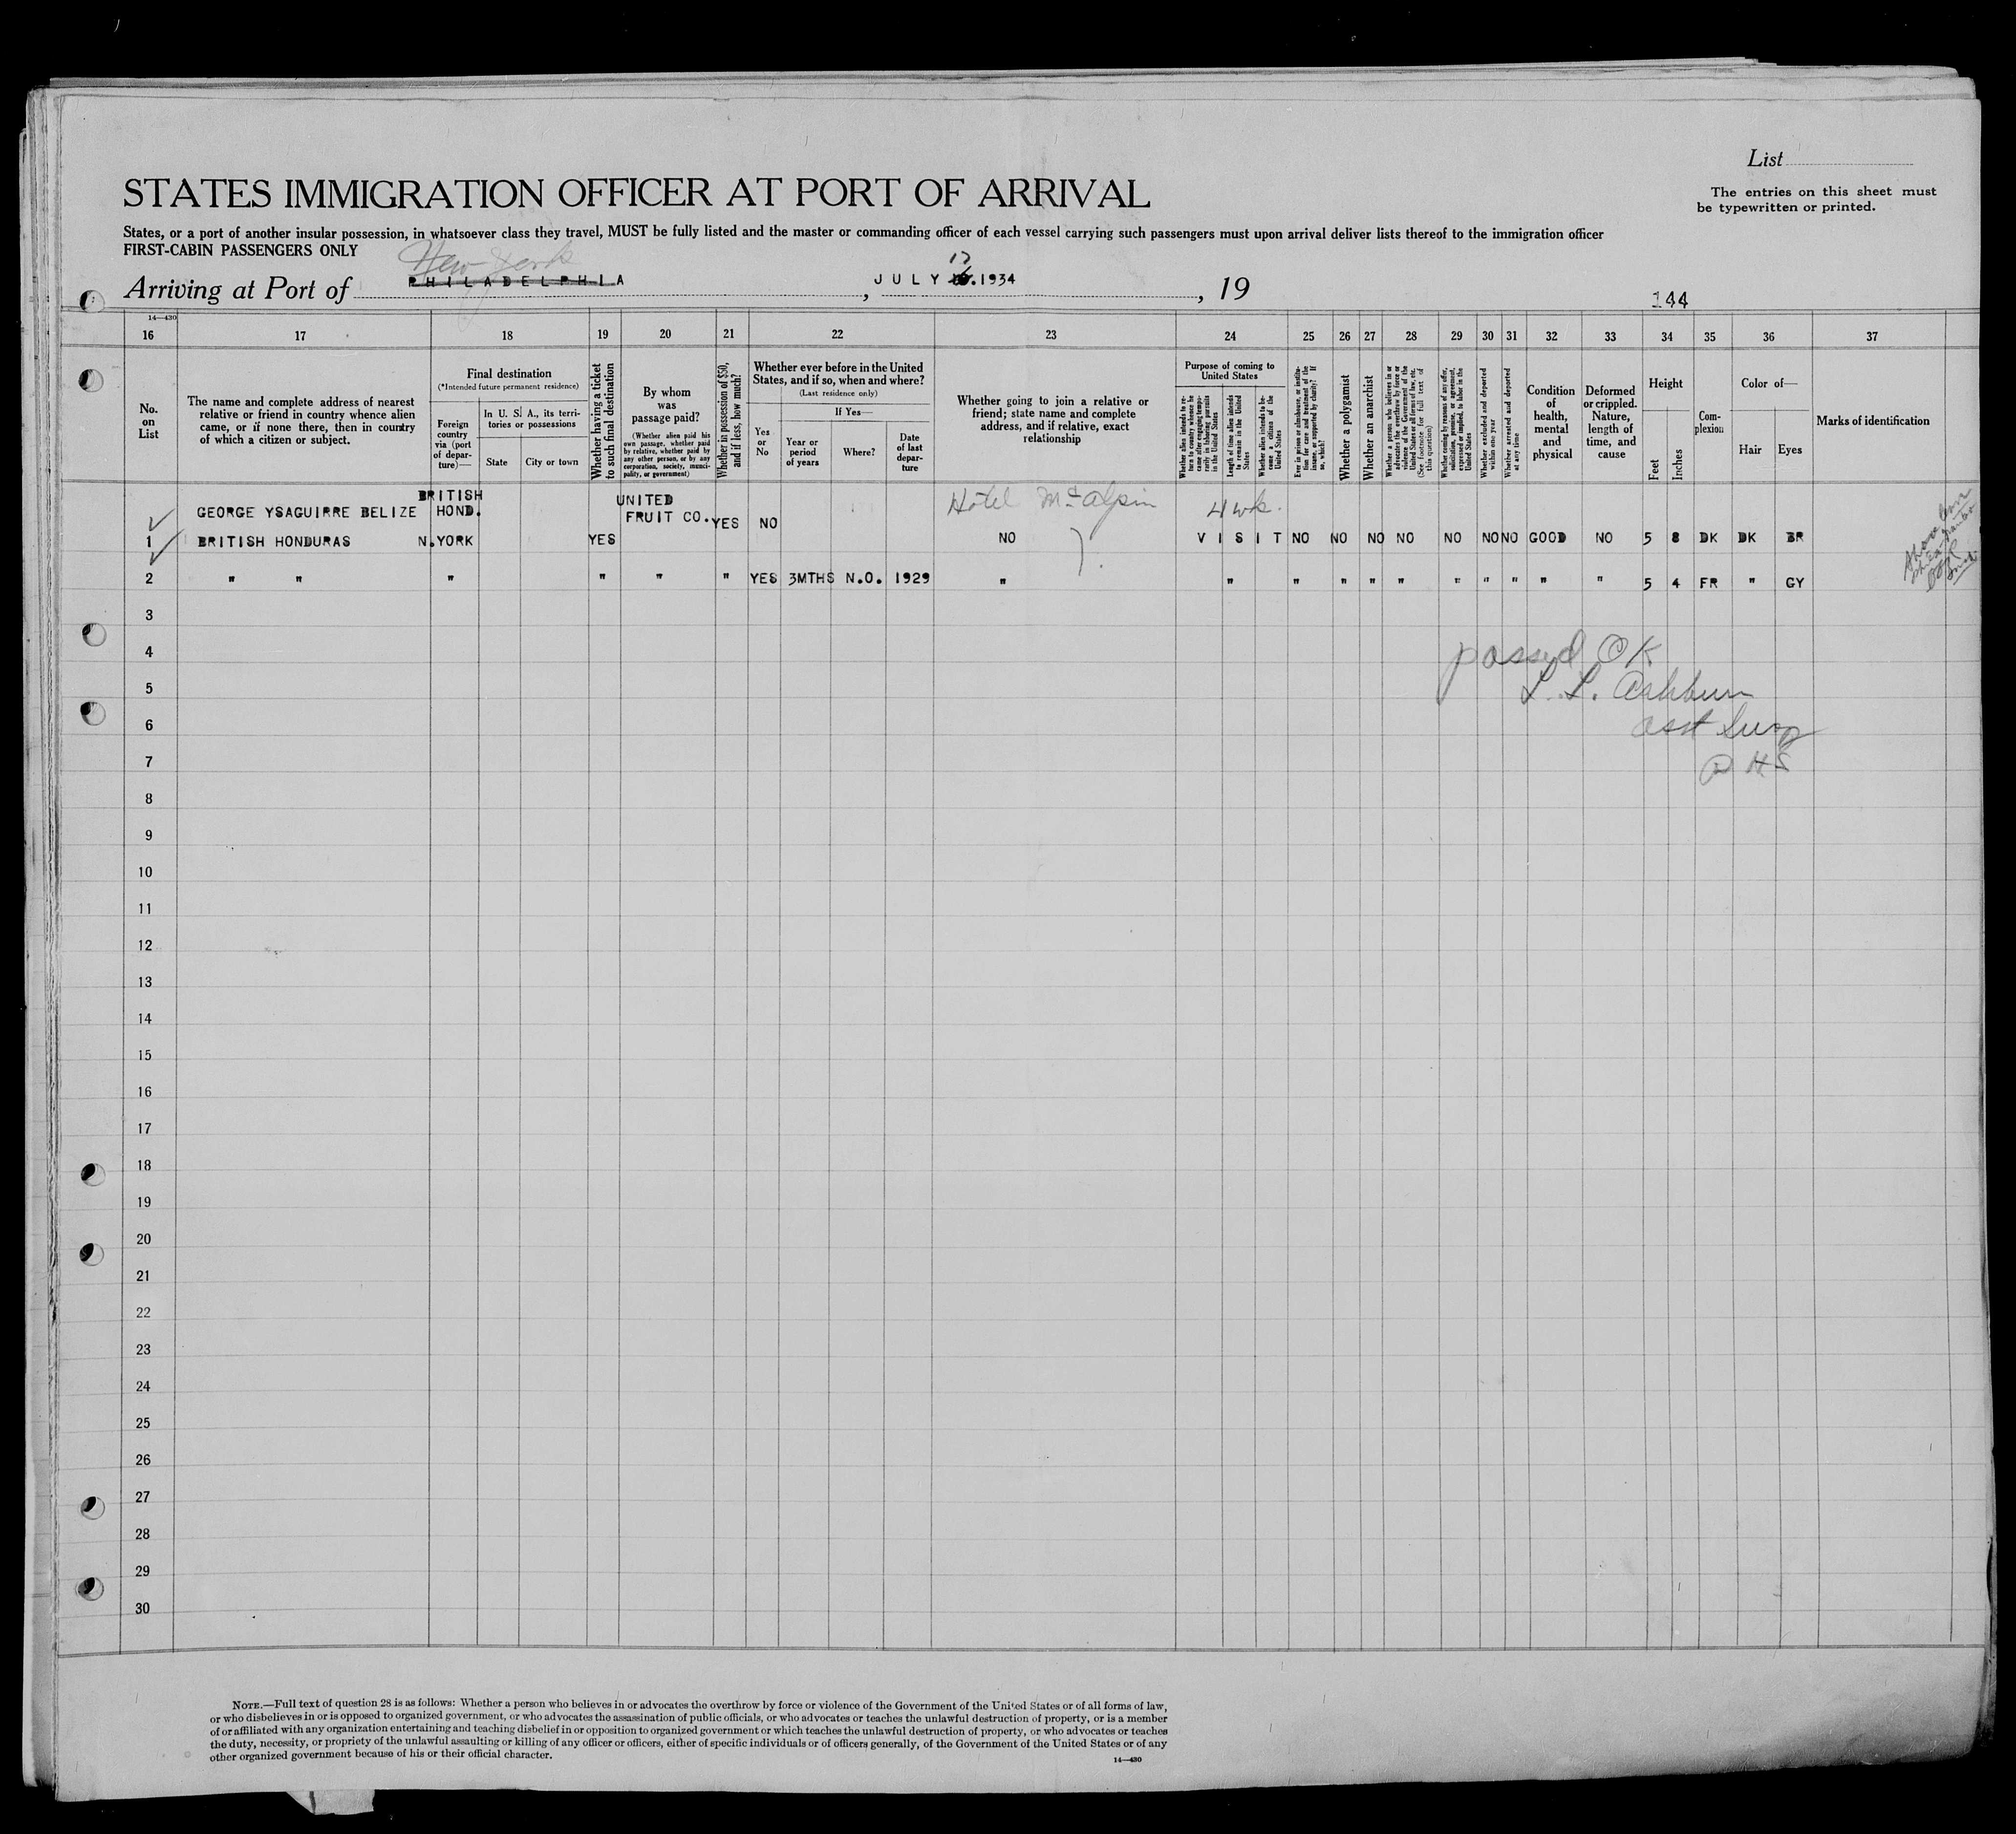 List
STATES IMMIGRATION OFFICER AT PORT OF ARRIVAL
The entries on this sheet must
be typewritten or printed.
States, or a port of another insular possession, in whatsoever class they travel, MUST be fully listed and the master or commanding officer of each vessel carrying such passengers must upon arrival deliver lists thereof to the immigration officer
FIRST-CABIN PASSENGERS ONLY
New York
Arriving at Port of PHILADELPHIA, JULY 1934, 19
144
14—430
16 17 18 19 20 21 22 23 24 25 26 27 28 29 30 31 32 33 34 35 36 37
No. on List
The name and complete address of nearest relative or friend in country whence alien came, or if none there, then in country of which a citizen or subject.
Final destination
(*Intended future permanent residence)
Foreign country via (port of departure)—
In U. S. A., its territories or possessions
State
City or town
Whether having a ticket to such final destination
By whom was passage paid?
(Whether alien paid his own passage, whether paid by relative, whether paid by any other person, or by any corporation, society, municipality, or government)
Whether in possession of $50, and if less, how much?
Whether ever before in the United States, and if so, when and where?
(Last residence only)
Yes or No
If Yes—
Year or period of years
Where?
Date of last departure
Whether going to join a relative or friend; state name and complete address, and if relative, exact relationship
Purpose of coming to United States
Whether alien intends to return to country whence he came after engaging temporarily in laboring pursuits in the United States
Length of time alien intends to remain in the United States
Whether alien intends to become a citizen of the United States
Ever in prison or almshouse, or institution for care and treatment of the insane, or supported by charity? If so, which?
Whether a polygamist
Whether an anarchist
Whether a person who believes in or advocates the overthrow by force or violence of the Government of the United States or all forms of law, etc. (See footnote for full text of this question)
Whether coming by reason of any offer, solicitation, promise, or agreement, expressed or implied, to labor in the United States
Whether excluded and deported within one year
Whether arrested and deported at any time
Condition of health, mental and physical
Deformed or crippled. Nature, length of time, and cause
Height
Feet
Inches
Complexion
Color of—
Hair
Eyes
Marks of identification
BRITISH UNITED Hotel McAlpin 4 wk.
GEORGE YSAGUIRRE BELIZE HOND. FRUIT CO. YES NO
1 BRITISH HONDURAS N.YORK YES NO VISIT NO NO NO NO NO NO NO GOOD NO 5 8 DK DK BR
2 " " " " " " YES 3MTHS N.O. 1929 " " " " " " " " " " " 5 4 FR " GY
3
4
passed OK
5
L. L. Ashburn
6
asst Surg
7
P H S
8
9
10
11
12
13
14
15
16
17
18
19
20
21
22
23
24
25
26
27
28
29
30
NOTE.—Full text of question 28 is as follows: Whether a person who believes in or advocates the overthrow by force or violence of the Government of the United States or of all forms of law,
or who disbelieves in or is opposed to organized government, or who advocates the assassination of public officials, or who advocates or teaches the unlawful destruction of property, or is a member
of or affiliated with any organization entertaining and teaching disbelief in or opposition to organized government or which teaches the unlawful destruction of property, or who advocates or teaches
the duty, necessity, or propriety of the unlawful assaulting or killing of any officer or officers, either of specific individuals or of officers generally, of the Government of the United States or of any
other organized government because of his or their official character.
14—430